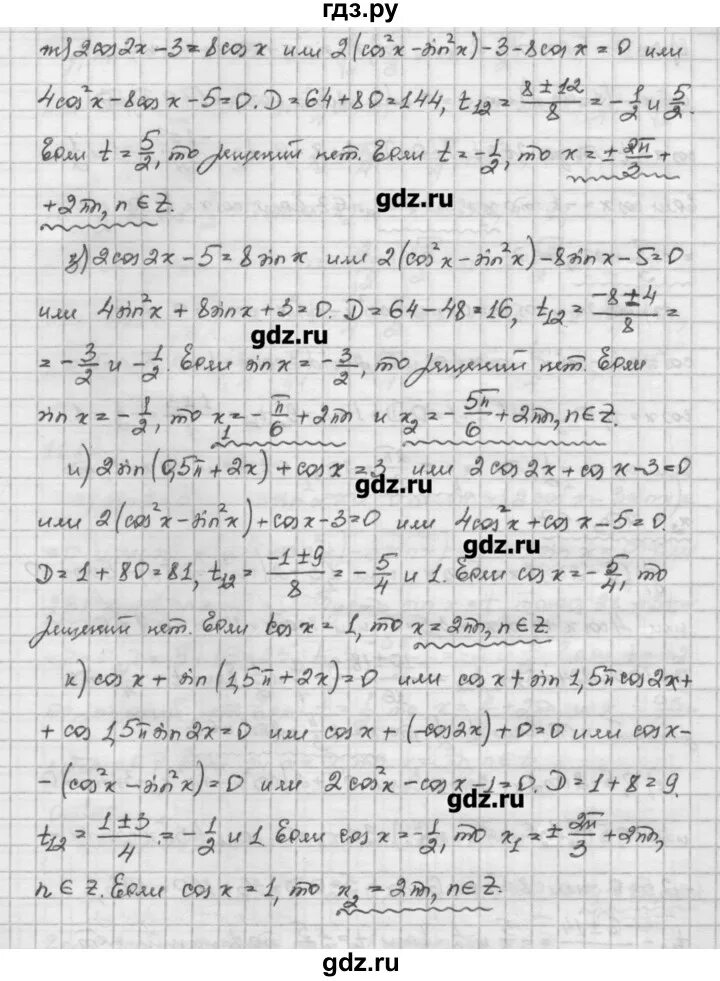 гдз.ру
ж) 2cos2x − 3 = 8cos x или 2(cos²x − sin²x) − 3 − 8cos x = 0 или
4cos²x − 8cos x − 5 = 0. D = 64 + 80 = 144, t₁₂ = (8 ± 12)/8 = − 1/2 и 5/2.
Если t = 5/2, то решений нет. Если t = − 1/2, то x = ± 2π/3 +
+ 2πn, n ∈ Z.
gdz.ru
з) 2cos2x − 5 = 8sin x или 2(cos²x − sin²x) − 8sin x − 5 = 0
или 4sin²x + 8sin x + 3 = 0. D = 64 − 48 = 16, t₁₂ = (−8 ± 4)/8 =
gdz.ru
= − 3/2 и − 1/2. Если sin x = − 3/2, то решений нет. Если
sin x = − 1/2, то x₁ = − π/6 + 2πn и x₂ = − 5π/6 + 2πn, n ∈ Z.
и) 2sin(0,5π + 2x) + cos x = 3 или 2cos2x + cos x − 3 = 0
gdz.ru
или 2(cos²x − sin²x) + cos x − 3 = 0 или 4cos²x + cos x − 5 = 0.
D = 1 + 80 = 81, t₁₂ = (−1 ± 9)/8 = − 5/4 и 1. Если cos x = − 5/4, то
решений нет. Если cos x = 1, то x = 2πn, n ∈ Z.
к) cos x + sin(1,5π + 2x) = 0 или cos x + sin 1,5π cos2x +
+ cos 1,5π sin2x = 0 или cos x + (−cos2x) + 0 = 0 или cos x −
− (cos²x − sin²x) = 0 или 2cos²x − cos x − 1 = 0. D = 1 + 8 = 9.
gdz.ru
t₁₂ = (1 ± 3)/4 = − 1/2 и 1. Если cos x = − 1/2, то x₁ = ± 2π/3 + 2πn,
n ∈ Z. Если cos x = 1, то x₂ = 2πn, n ∈ Z.
gdz.ru
gdz.ru